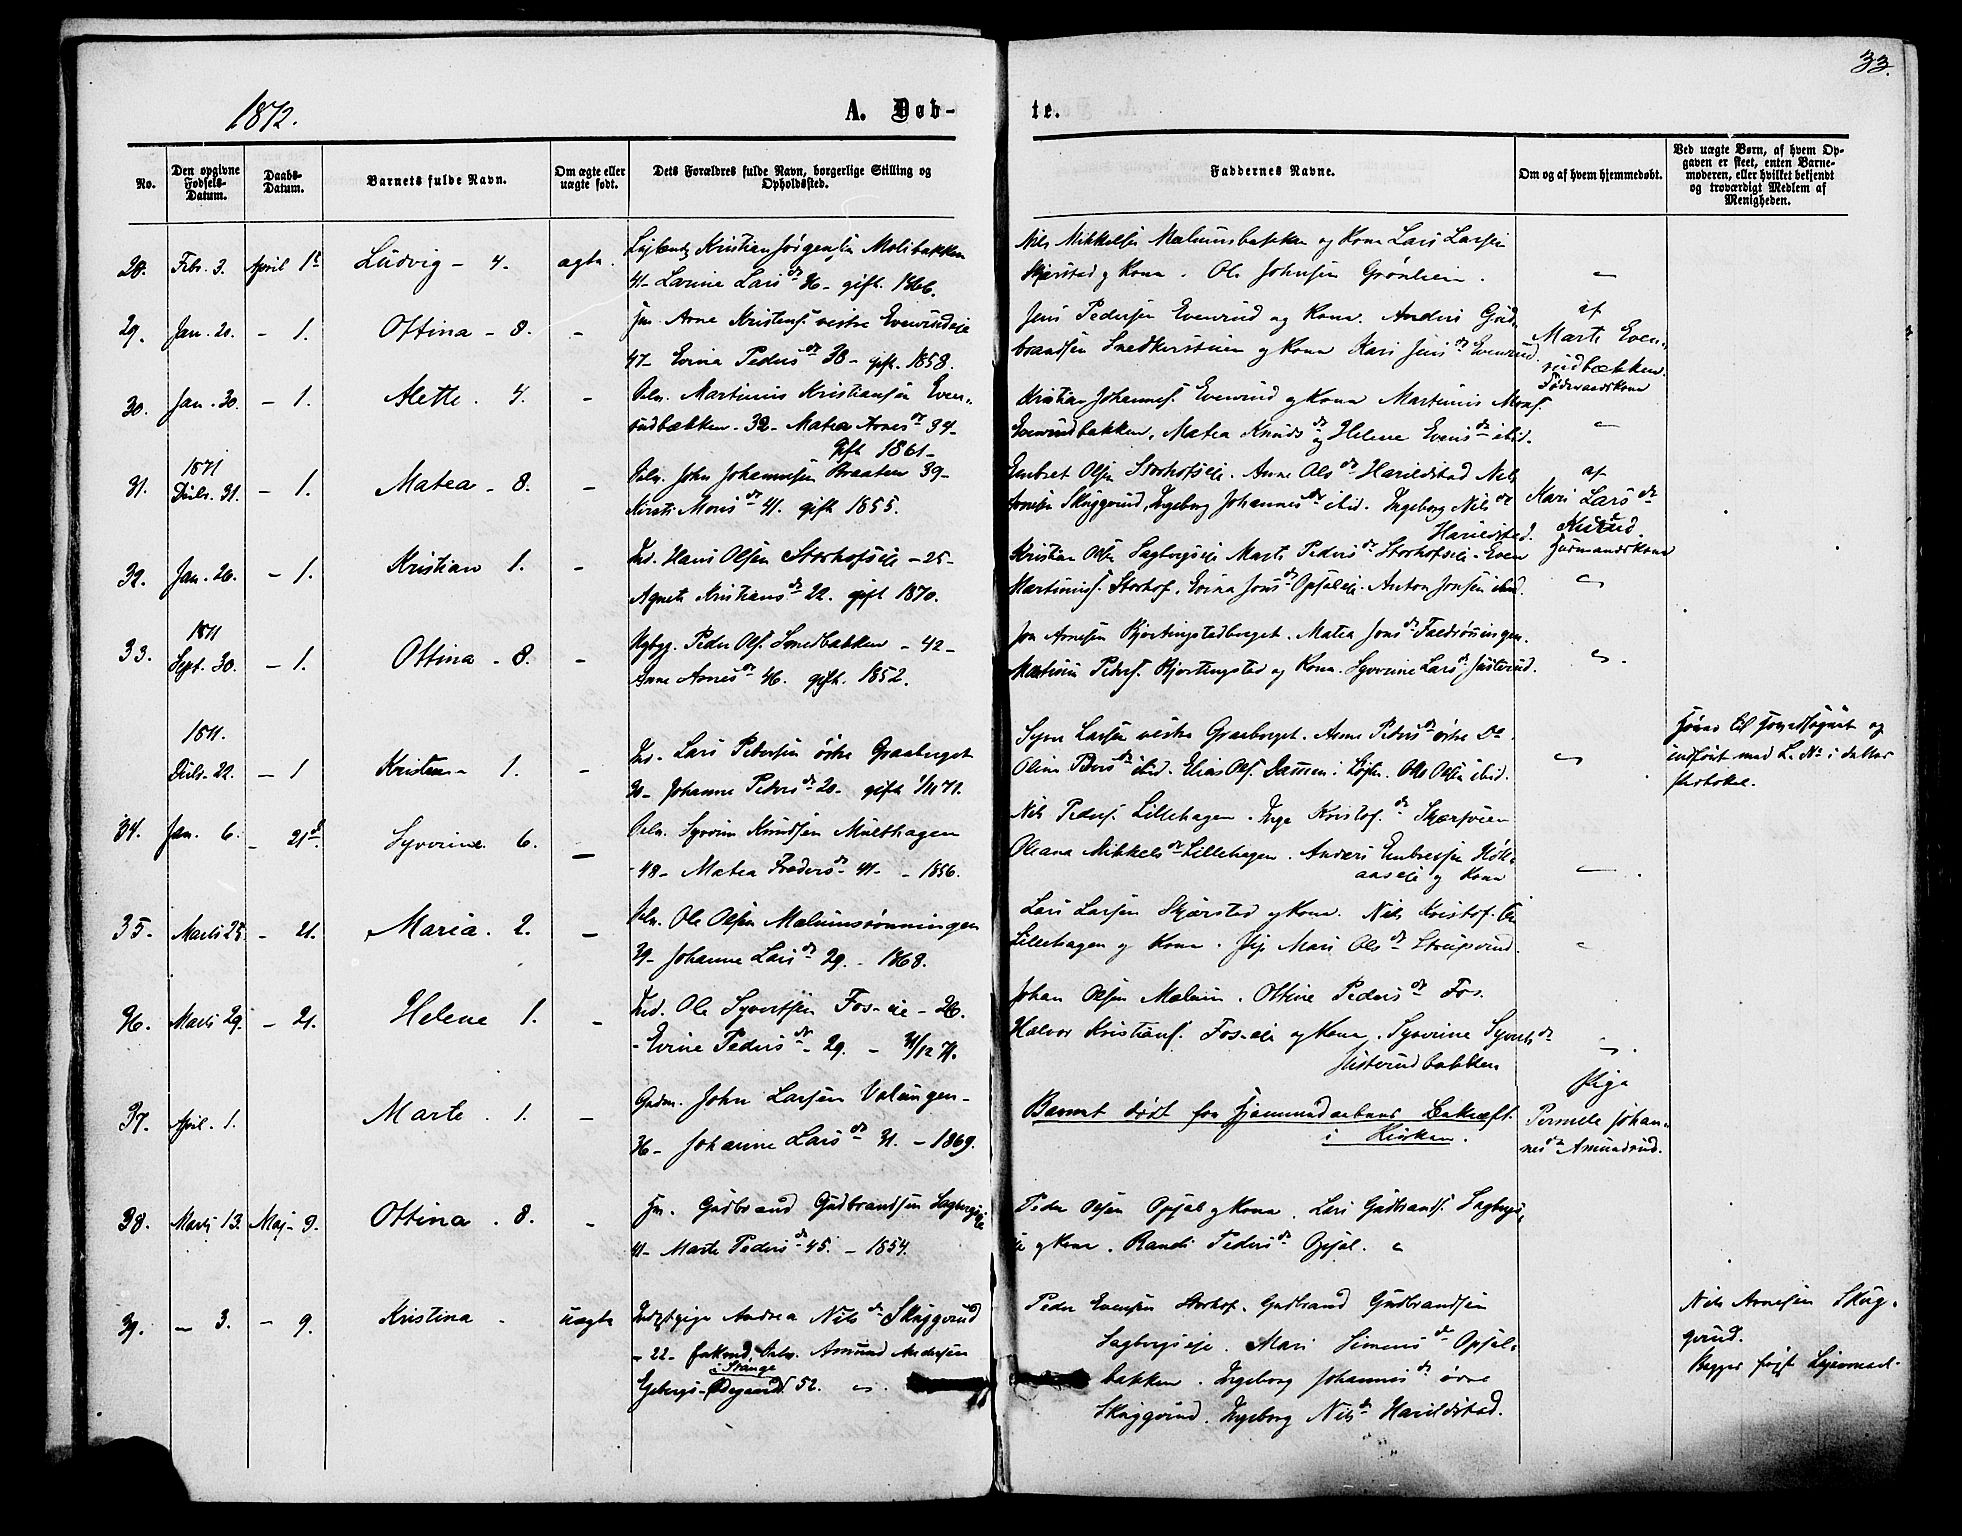 33.
1872.
A. Døb-
te.
No.
Den opgivne
Fødsels-
Datum.
Daabs-
Datum.
Barnets fulde Navn.
Om ægte eller
uægte født.
Dets Forældres fulde Navn, borgerlige Stilling og
Opholdssted.
Faddernes Navne.
Om og af hvem hjemmedøbt.
Ved uægte Børn, af hvem Op-
gaven er skeet, enten Barne-
moderen, eller hvilket bekjendt
og troværdigt Medlem af
Menigheden.
28. Febr. 3. April 1 Ludvig - 4. ægte.
Kristian Jørgensen Molibakken
41- Larine Lars dr 36- gift. 1866.
Nils Mikkelsen og Kona Lars Larsen
Skjærstad og Kona. Ole Johnsen Grønlien.
29. Jan. 20. - 1. Ottina - 8. -
Arne Kristens. vestre Evenrudeie
47- Evina Peders dr 38- gift. 1858.
Jens Pedersen Evenrud og Kona. Anders Gud-
brandsen Snedkerstuen og Kona Kari Jens dr Evenrud.
af
Marte Even-
rudbækken.
30. Jan. 30. - 1. Alette. 4. -
Martinius Kristiansen Even-
rudbækken. 32- Matea Arnes dr 34-
Gift 1861-
Kristian Johannes. Evenrud og Kona Martinius Mons.
Evenrudbakken, Matea Knuds dr og Helene Evens dr ibid.
31. 1871
Decbr. 31. - 1. Matea - 8. -
John Johannesen Braaten 39-
Mons dr 41. gift 1855.
Embret Olsen Storhofseie. Anne Ols dr Harildstad Nils
Arnesen Skuggerud, Ingeborg Johannes dr ibid. Ingeborg Nils dr
Harildstad.
af
Kari Lars dr
32. Jan. 26. - 1. Kristian 1. -
Ind. Hans Olsen Storhofseie - 25-
Agnete Kristians dr 22. gift 1870.
Kristian Olsen Sagbergseie Marte Peders dr Storhofseie - Even
Martinius. Storhof, Evina Jons dr Opsaleie. Anton Jonsen ibid.
33. 1871
Sept. 30. - 1. Ottina - 8. -
Peder Ols. Smedbakken - 42-
Anne Arnes dr 46. gift. 1852.
Jon Arnesen Kjortingstadberget. Matea Jons dr
Peders. Kjortingstad og Kona. Syverine Lars dr Justerud.
1871.
Decbr. 22. - 1 Kristian - 1. -
Ind. Lars Pedersen østre Graaberget
30- Johanne Peders dr 20- gift 1/11 71.
Syver Larsen vestre Graaberget. Anne Peders dr østre Do.
Oline Peders dr ibid. Elias Ols. i Løiten. Olle Olsen ibid.
Hører til Hovedsognet og
indført med L. No i dette
Protokol.
34. Jan. 6. - 21 d. Syverine. 6. -
Syverin Knudsen Multhagen
-48- Matea Freders dr 41- - 1856.
Nils Peders. Lillehagen. Inge Kristof. dr
Oleana Mikkels dr Lillehagen. Anders Embretsen
aaseie og Kona
35. Marts 25. - 21. Maria. 2. -
Ole Olsen Mælumsrønningen
29- Johanne Lars dr 29. - 1868.
Lars Larsen Skjærstad og Kona. Nils Kristof.
Lillehagen og Kona. Pige Mari Ols dr
36. Marts 29. - 21. Helene 1. -
Ind. Ole Syvertsen Fos-eie - 26.
- Evine Peders dr - 29. - 31/12 71.
Johan Olsen Mælum. Ottine Peders dr Fos.
Halvor Kristians. Fos-eie og Kona. Syverine Syverts dr
Justerudbakken
37. April. 1. Marte. 1. -
Gudm. John Larsen Volungen-
36- Johanne Lars dr 31. - 1869.
Barnet dødt før Hjemmedaabens Bekræft.
i Kirken.
Pige
Pernille Johan-
nes dr Amundrud.
38. Marts 13. Maj - 9. Ottina. 8. -
Hm. Gudbrand Gudbrandsen Sagbergseie
41- Marte Peders dr 45. - 1854.
Peder Olsen Opsal og Kona. Lars Gudbrands. Sagbergs-
eie og Kona. Randi Peders dr Opsal.
39. - 3. - 9. Kristina - uægte
Andrea Nils dr Skuggerud
- 22- Amund Andersen
i Stange
Egebergs-Ødegaard 52.
Peder Evensen Storhof. Gudbrand Gudbrandsen
Sagbergseie. Mari Simens dr Opsal-
bakken. Ingeborg Johannes dr øvre
Skuggerud. Ingeborg Nils dr Harildstad.
Nils Arnesen Skug-
gerud.